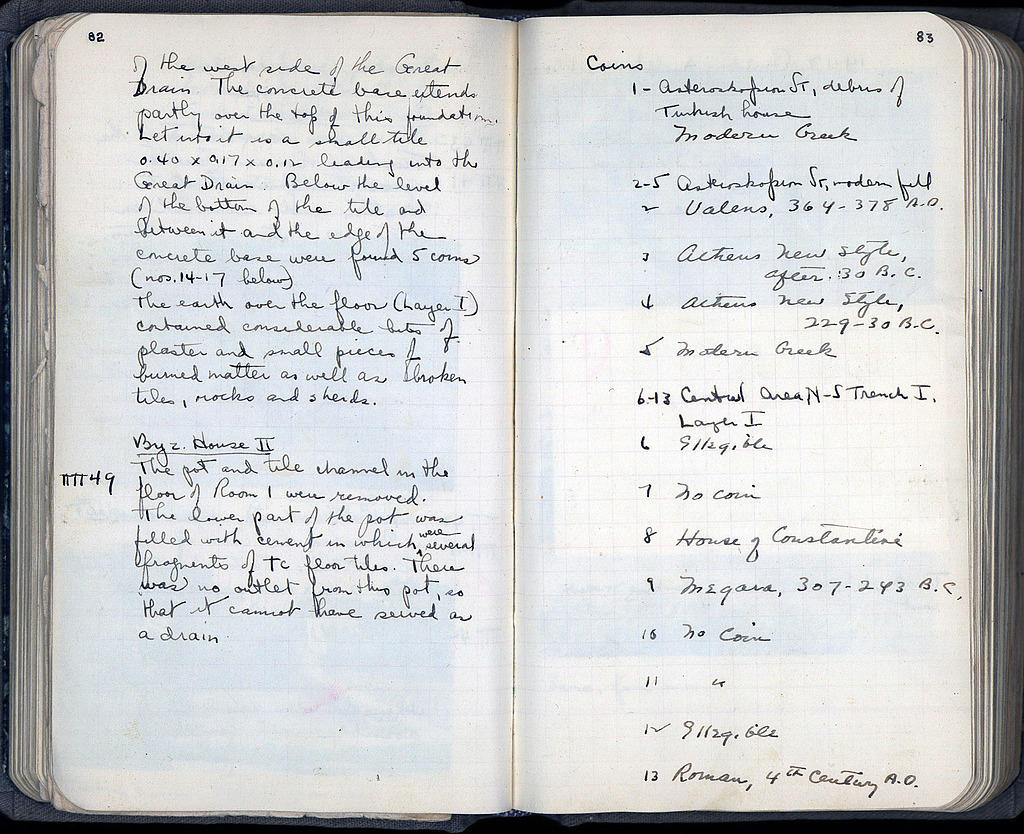 82
of the west side of the Great
Drain. The concrete base extends
partly over the top of this foundation.
Let into it is a small tile
0.40 x 0.17 x 0.12 leading into the
Great Drain. Below the level
of the bottom of the tile and
between it and the edge of the
concrete base were found 5 coins
(nos. 14-17 below)
The earth over the floor (Layer I)
contained considerable bits of
plaster and small pieces of
burned matter as well as broken
tiles, rocks and sherds.
Byz. House II
ΠΠ 49
The pot and tile channel in the
floor of Room 1 were removed.
The lower part of the pot was
filled with cement in which were several
fragments of tc floor tiles. There
was no outlet from this pot, so
that it cannot have served as
a drain.
83
Coins
1 - Asteroskopion St, debris of
Turkish house
Modern Greek
2-5 Asteroskopion St, modern fill
2 Valens, 364-378 A.D.
3 Athens New Style,
after 30 B.C.
4 Athens New Style,
229-30 B.C.
5 Modern Greek
6-13 Central Area N-S Trench I,
Layer I
6 Illegible
7 No coin
8 House of Constantine
9 Megara, 307-243 B.C.
10 No Coin
11 "
12 Illegible
13 Roman, 4th Century A.D.